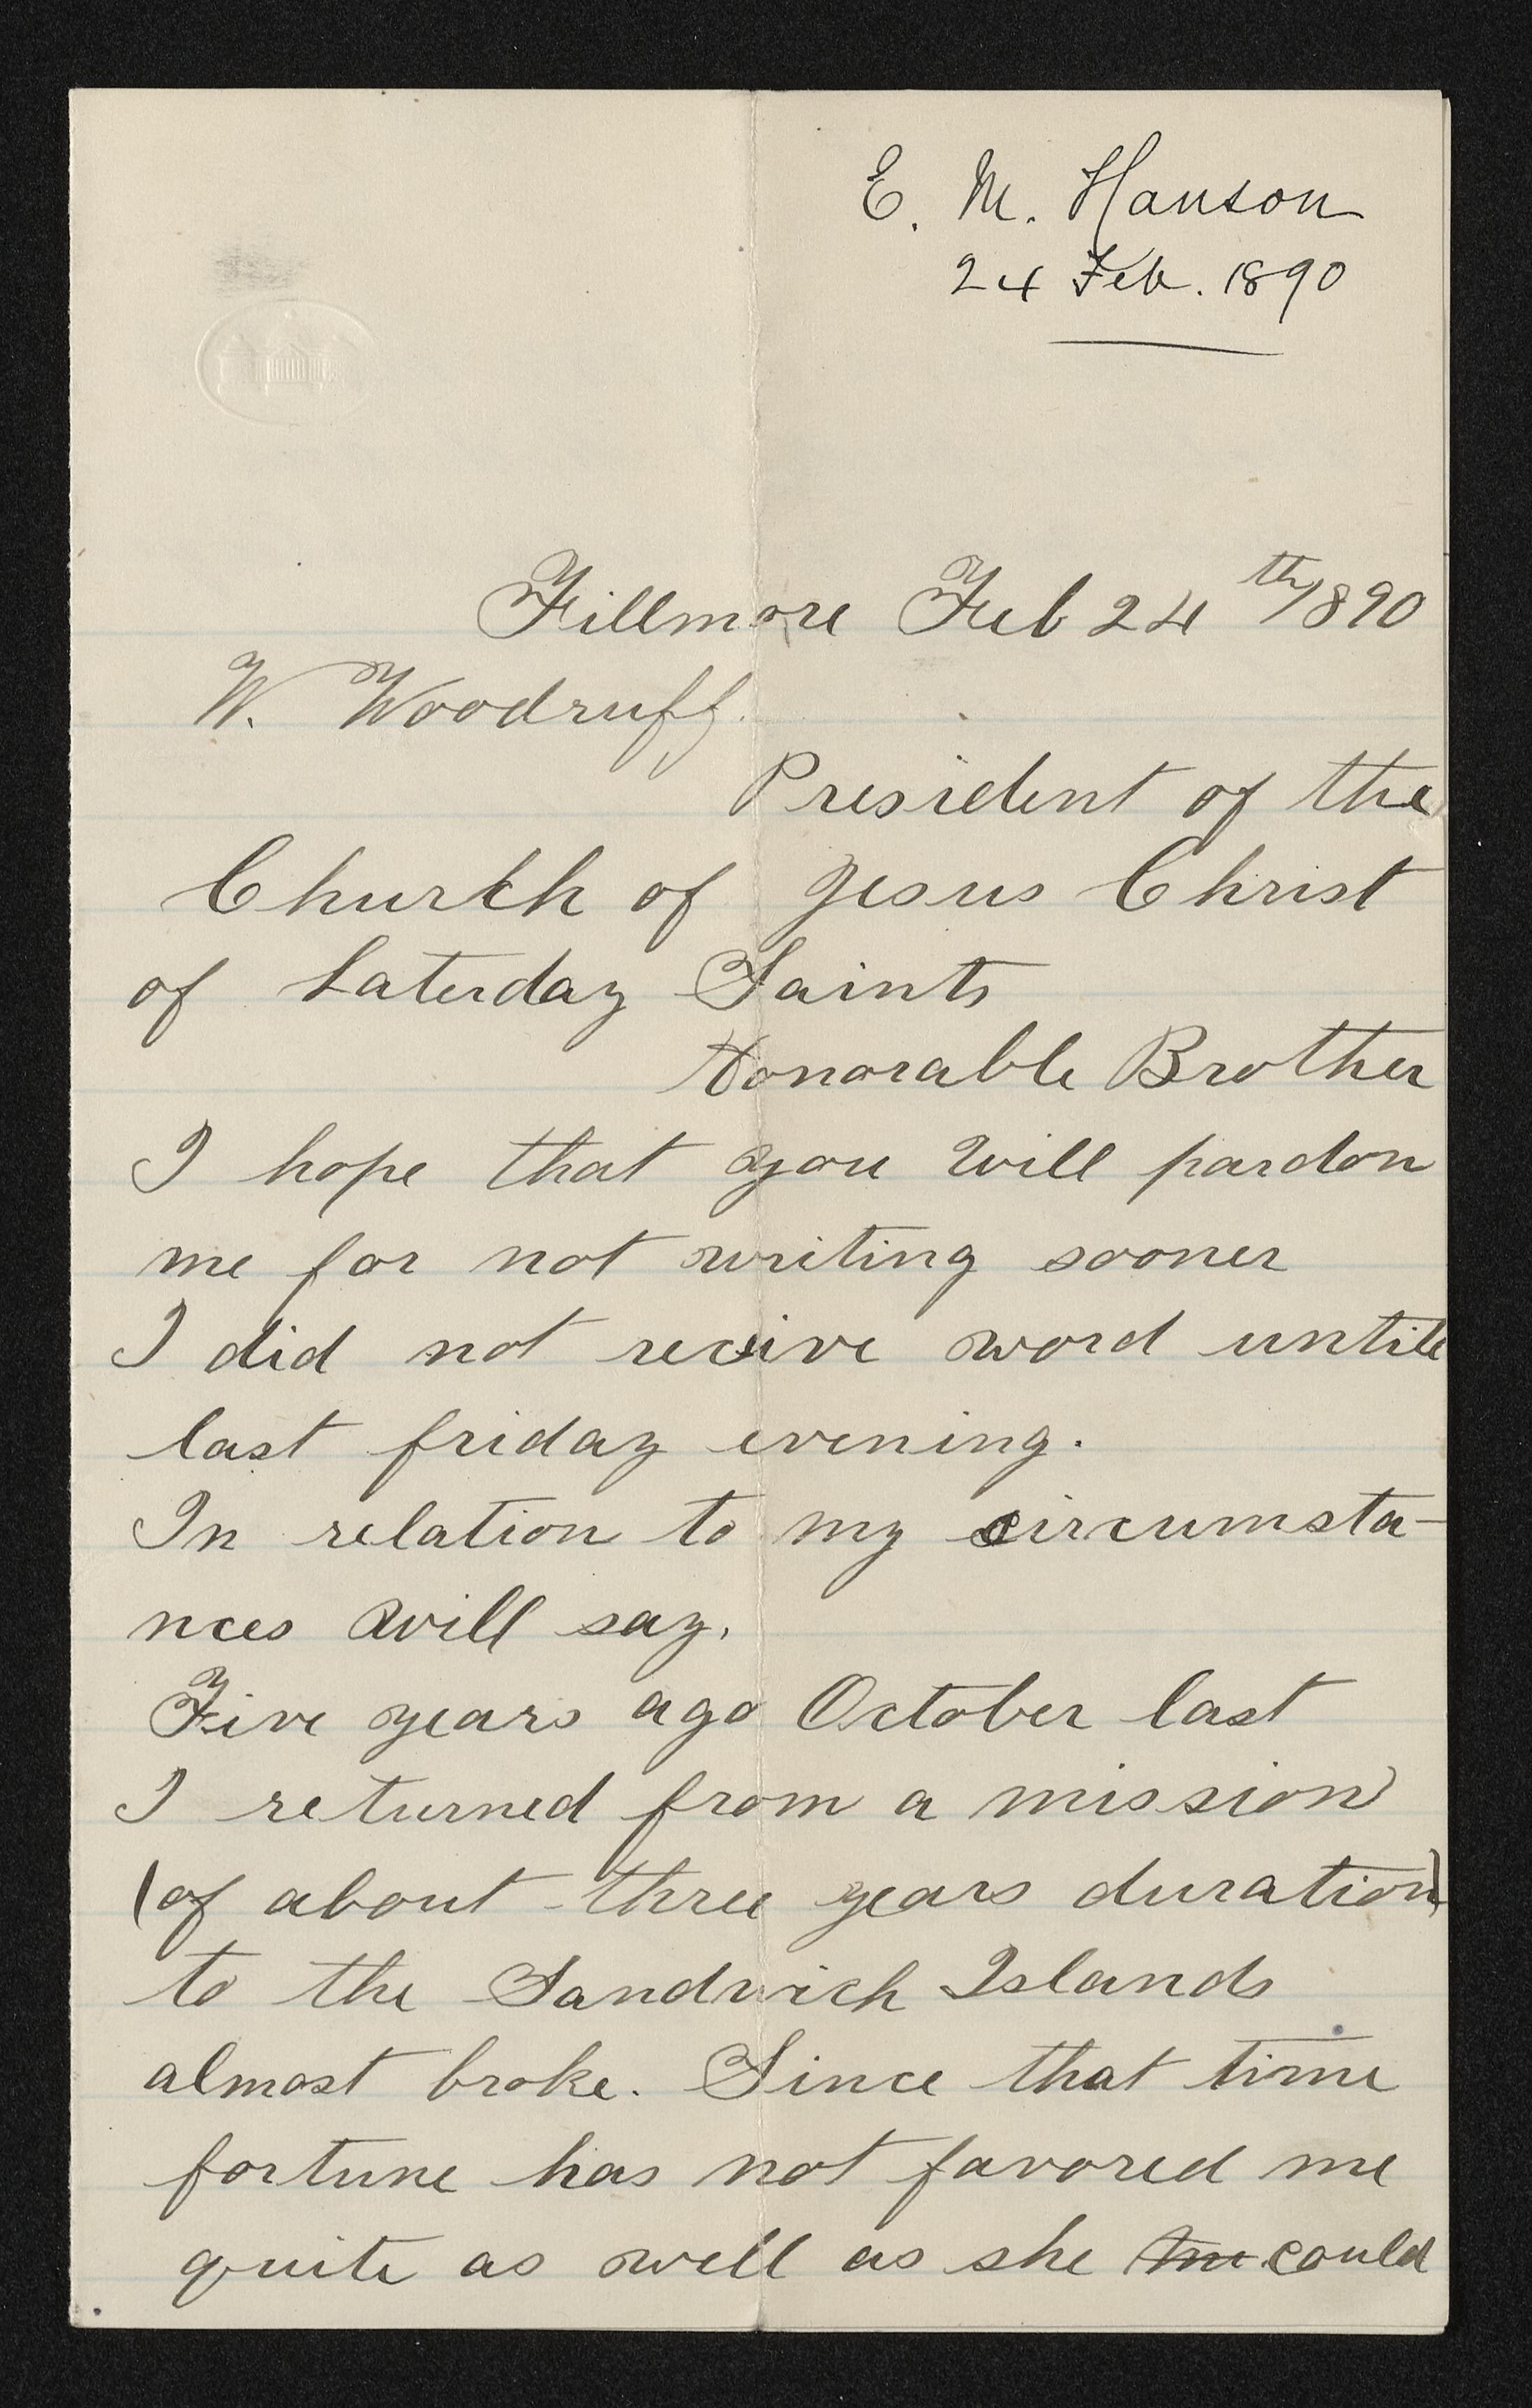 E. M. Hanson
24 Feb. 1890
Fillmore Feb 24th 1890
W. Woodruff.
President of the
Church of Jesus Christ
of Laterday Saints
Honorable Brother
I hope that you will pardon
me for not writing sooner
I did not receive word untill
last friday evening.
In relation to my circumsta-
nces will say.
Five years ago October last
I returned from a mission
(of about three years duration)
to the Sandwich Islands
almost broke. Since that time
fortune has not favored me
quite as well as she could